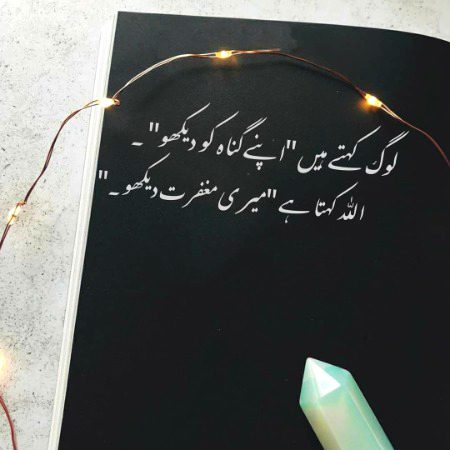 لوگ کہتے ہیں "اپنے گناہ کو دیکھو"۔
اللہ کہتا ہے "میری مغفرت دیکھو۔"